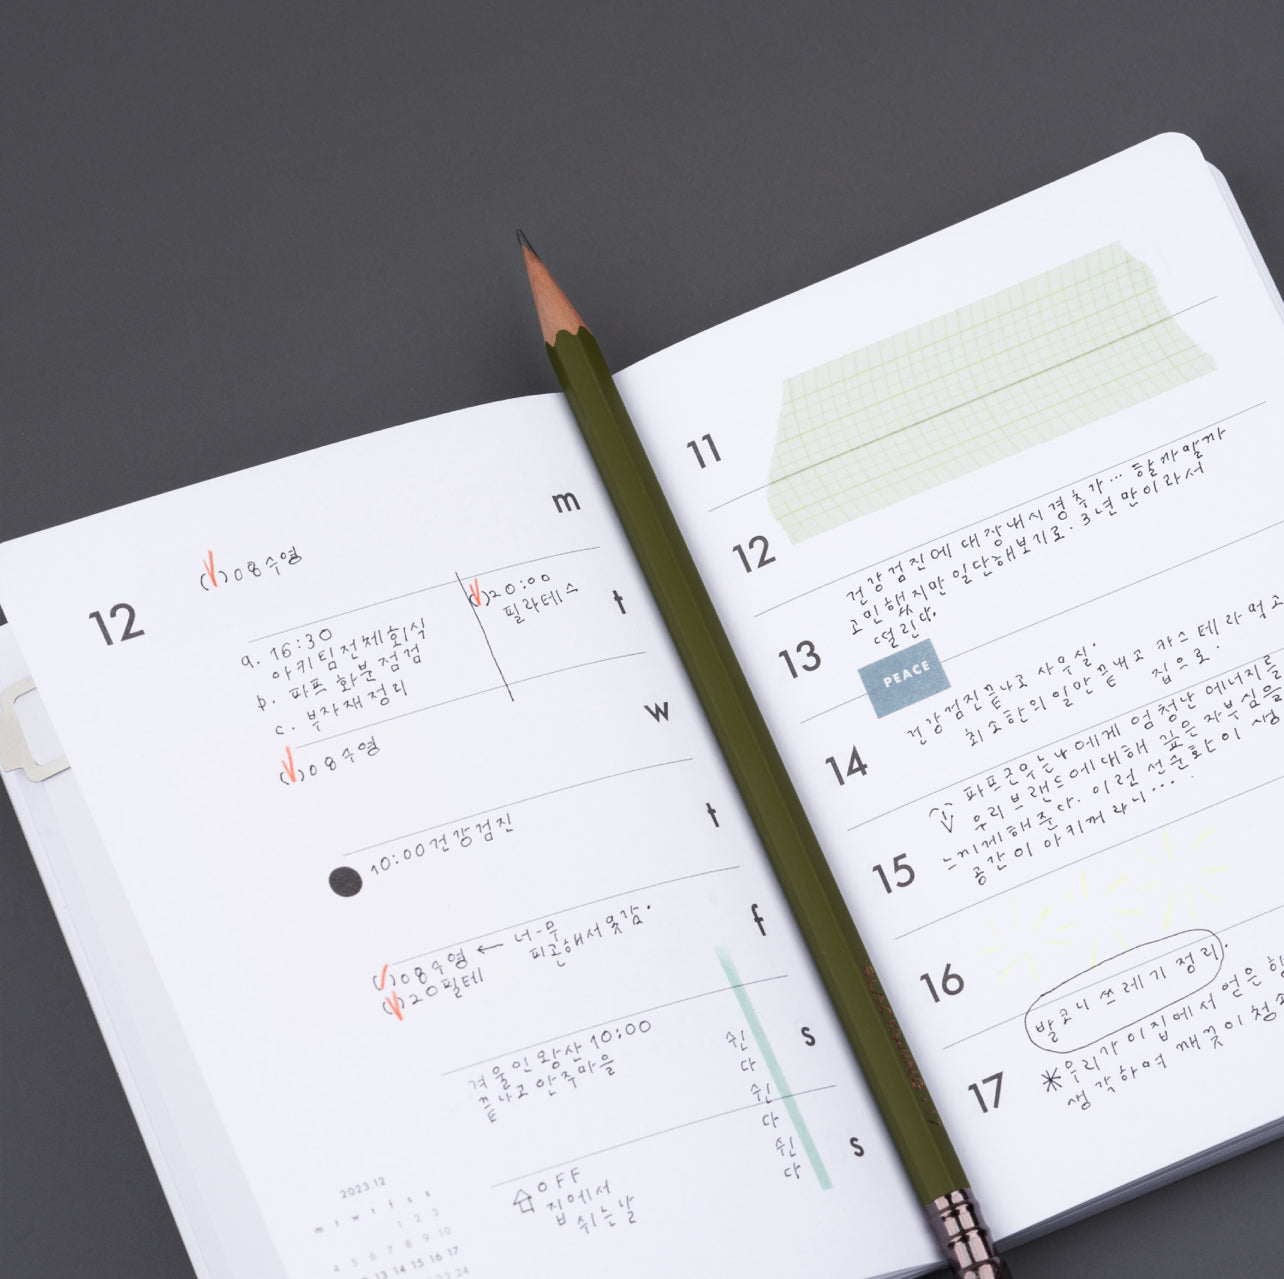 12
m
(√)08수영
t
a. 16:30
아키팀전체회식
b. 파프 화분 점검
c. 부자재정리
(√)20:00
필라테스
w
(√)08수영
t
10:00건강검진
f
(√)08수영 ← 너-무
피곤해서 못감.
(√)20필테
s
겨울인왕산 10:00
끝나고 안주마을
쉰
다
쉰
다
쉰
다
s
OFF
집에서
쉬는날
2023.12
m t w t f s s
1 2 3
4 5 6 7 8 9 10
12 13 14 15 16 17
23 24
11
12
건강검진에 대장내시경추가... 할까말까
고민했지만 일단해보기로. 3년만이라서
떨린다.
13
PEACE
건강검진끝나고 사우실.
최소한의 일만 끝내고 카스테라먹고
집으로.
14
파프근무는나에게 엄청난 에너지를
우리브랜드에대해 깊은 자부심을
느끼게해준다. 이런 선순환이 생
공간이 아키꺼라니...
15
16
발코니 쓰레기 정리.
17
*우리가 이집에서 얻은
생각하며 깨끗이 청소